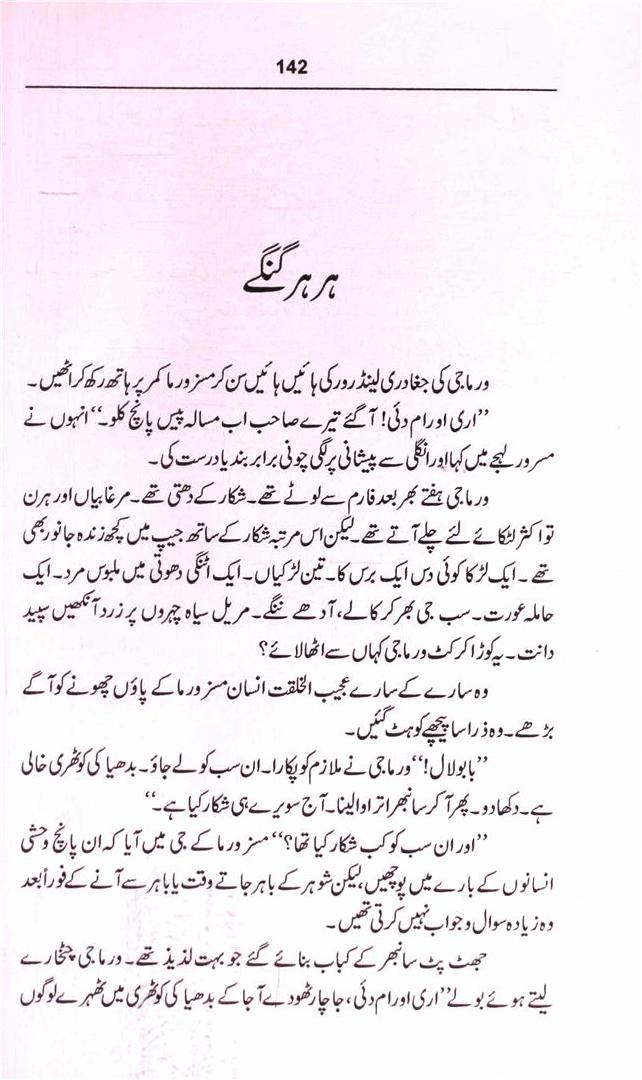 142
ہر ہر گنگے
ورما جی کی جغادری لینڈ روور کی ہائیں ہائیں سن کر مسز ورما کمر پر ہاتھ رکھ کر اٹھیں۔
”اری اورام دئی! آگئے تیرے صاحب اب مسالہ پیس پانچ کلو۔“ انہوں نے
مسرور لہجے میں کہا اور انگلی سے پیشانی پر لگی چونی برابر بندیا درست کی۔
ورما جی ہفتے بھر بعد فارم سے لوٹے تھے۔ شکار کے دھتی تھے۔ مرغابیاں اور ہرن
تو اکثر لٹکائے لئے چلے آتے تھے۔ لیکن اس مرتبہ شکار کے ساتھ جیپ میں کچھ زندہ جانور بھی
تھے۔ ایک لڑکا کوئی دس ایک برس کا۔ تین لڑکیاں۔ ایک اٹنگی دھوتی میں ملبوس مرد۔ ایک
حاملہ عورت۔ سب جی بھر کر کالے، آدھے ننگے۔ مریل سیاہ چہروں پر زرد آنکھیں سپید
دانت۔ یہ کوڑا کرکٹ ورما جی کہاں سے اٹھا لائے؟
وہ سارے کے سارے عجیب الخلقت انسان مسز ورما کے پاؤں چھونے کو آگے
بڑھے۔ وہ ذرا سا پیچھے کو ہٹ گئیں۔
”بابو لال!“ ورما جی نے ملازم کو پکارا۔ ان سب کو لے جاؤ۔ بدھیا کی کوٹھری خالی
ہے۔ دکھا دو۔ پھر آ کر سانبھر اتروا لینا۔ آج سویرے ہی شکار کیا ہے۔“
”اور ان سب کو کب شکار کیا تھا؟“ مسز ورما کے جی میں آیا کہ ان پانچ وحشی
انسانوں کے بارے میں پوچھیں، لیکن شوہر کے باہر جاتے وقت یا باہر سے آنے کے فوراً بعد
وہ زیادہ سوال و جواب نہیں کرتی تھیں۔
جھٹ پٹ سانبھر کے کباب بنائے گئے جو بہت لذیذ تھے۔ ورما جی چٹخارے
لیتے ہوئے بولے ”اری اورام دئی، جا چار ٹھو دے آ جا کے بدھیا کی کوٹھری میں ٹھہرے لوگوں